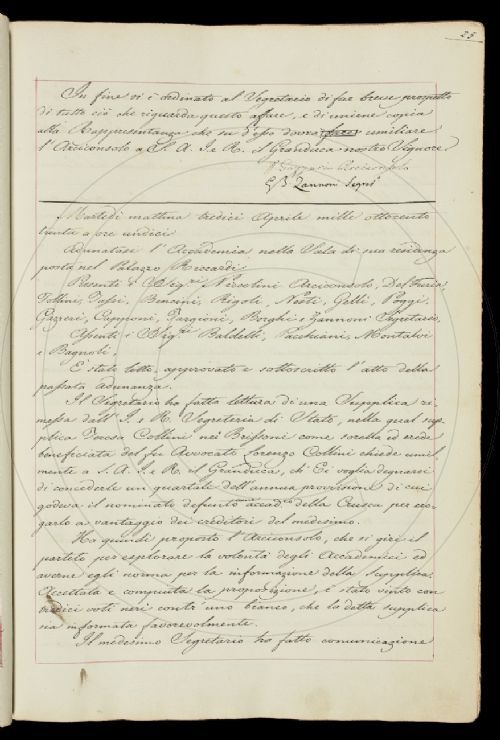 25
In fine si è ordinato al Segretario di far breve prospetto
di tutto ciò che riguarda questo affare, e di unirne copia
alla Rappresentanza che su d'esso dovrà umiliare
l'Arciconsolo a S. A. I. e R. il Granduca nostro Signore.
Arciconsolo
G B Zannoni Segret.º
Martedì mattina tredici Aprile mille ottocento
trenta a ore undici
Adunatasi l'Accademia nella Sala di sua residenza
posta nel Palazzo Riccardi;
Presenti i Sigg.ri Niccolini Arciconsolo, Del Furia,
Follini, Tassi, Bencini, Rigoli, Nesti, Gelli, Poggi,
Gazzeri, Capponi, Targioni, Borghi e Zannoni Segretario,
Assenti i Sigg.ri Baldelli, Pacchiani, Montalvi
e Bagnoli,
È stato letto, approvato e sottoscritto l'atto della
passata adunanza.
Il Segretario ha fatta lettura di una Supplica ri-
messa dall'I. e R. Segreteria di Stato, nella qual sup-
plica Teresa Collini nei Brissoni come sorella ed erede
beneficiata del fu Avvocato Lorenzo Collini chiede umil-
mente a S. A. I. e R. il Granduca, ch'Ei voglia degnarsi
di concederle un quartale dell'annua provvisione di cui
godeva il nominato defunto accad.co della Crusca per ero-
garlo a vantaggio dei creditori del medesimo.
Ha quindi proposto l'Arciconsolo, che si giri il
partito per esplorare la volontà degli Accademici ed
averne egli norma per la informazione della supplica.
Accettata e compiuta la proposizione, è stato vinto con
tredici voti neri contr'uno bianco, che la detta supplica
sia informata favorevolmente.
Il medesimo Segretario ha fatto comunicazione